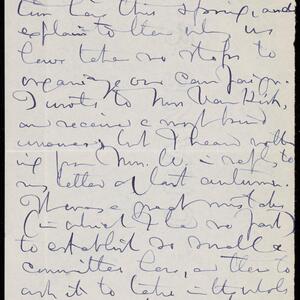 this spring, and
explain to them why we
have taken no steps to
organize our campaign.
I wrote to Mrs Van Kirk,
and receive a most kind
answer, but I hear noth
ing from Mrs. W. in reply to
my letter of last autumn.
It was a great mistake
(in which I had no part)
to establish so small a
committee here, and then to
ask it to take in the whole